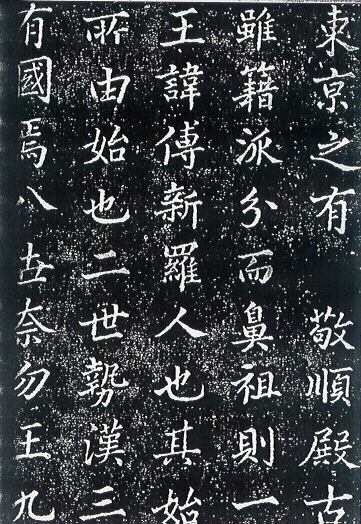 東京之有　敬順殿古
雖籍派分而鼻祖則一
王諱傅新羅人也其始
所由始也二世勢漢三
有國焉八世奈勿王九